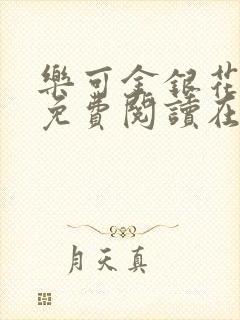 樂可金銀花
免費閱讀在
月天真